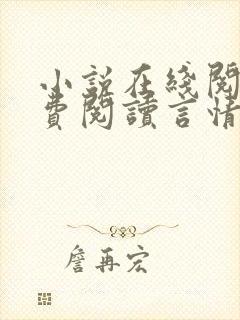 小說在綫閱
費閱讀言情
詹再宏